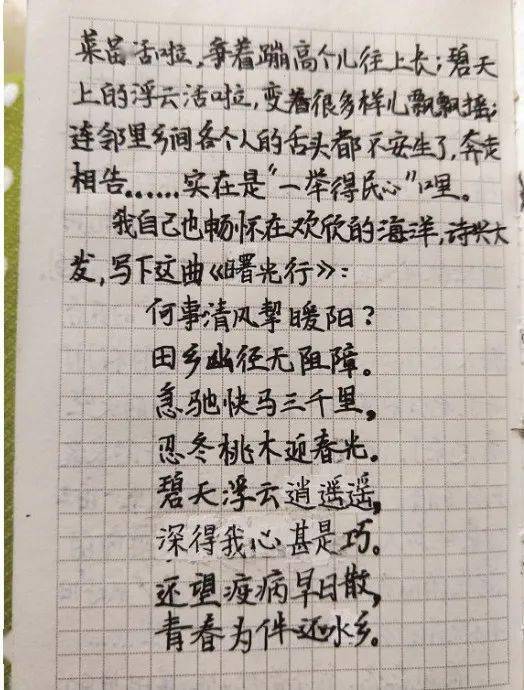 菜苗活啦，争着蹦高个儿往上长；碧天
上的浮云活啦，变着很多样儿飘飘摇；
连邻里乡间各个人的舌头都不安生了，奔走
相告……实在是“一举得民心”哩。
我自己也畅怀在欢欣的海洋，诗兴大
发，写下这曲《曙光行》：
何事清风挈暖阳？
田乡幽径无阻障。
急驰快马三千里，
忍冬桃木迎春光。
碧天浮云逍遥遥，
深得我心甚是巧。
还望疫病早日散，
青春为伴还水乡。